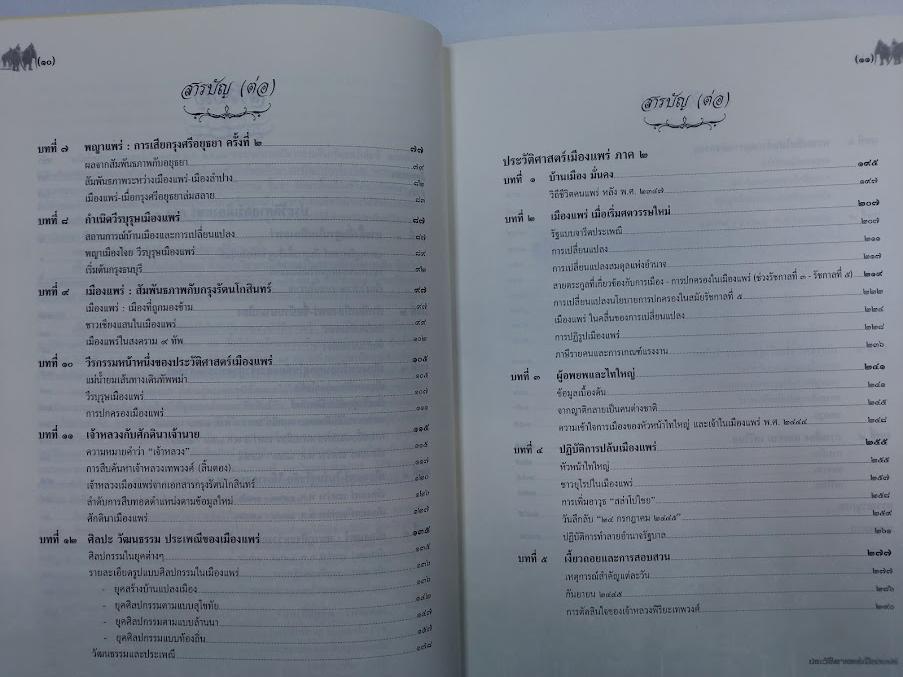 (๑๐)
สารบัญ (ต่อ)
บทที่ ๗ พญาแพร่ : การเสียกรุงศรีอยุธยา ครั้งที่ ๒ ๗๗
ผลจากสัมพันธภาพกับอยุธยา ๗๙
สัมพันธภาพระหว่างเมืองแพร่-เมืองลำปาง ๘๒
เมืองแพร่-เมื่อกรุงศรีอยุธยาล่มสลาย ๘๓
บทที่ ๘ กำเนิดวีรบุรุษเมืองแพร่ ๘๗
สถานการณ์บ้านเมืองและการเปลี่ยนแปลง ๘๗
พญาเมืองไจย วีรบุรุษเมืองแพร่ ๘๙
เริ่มต้นกรุงธนบุรี ๙๒
บทที่ ๙ เมืองแพร่ : สัมพันธภาพกับกรุงรัตนโกสินทร์ ๙๗
เมืองแพร่ : เมืองที่ถูกมองข้าม ๙๗
ชาวเชียงแสนในเมืองแพร่ ๙๙
เมืองแพร่ในสงคราม ๙ ทัพ ๑๐๒
บทที่ ๑๐ วีรกรรมหน้าหนึ่งของประวัติศาสตร์เมืองแพร่ ๑๐๕
แม่น้ำยมเส้นทางเดินทัพพม่า ๑๐๕
วีรบุรุษเมืองแพร่ ๑๐๗
การปกครองเมืองแพร่ ๑๑๑
บทที่ ๑๑ เจ้าหลวงกับศักดินาเจ้านาย ๑๑๕
ความหมายคำว่า "เจ้าหลวง" ๑๑๕
การสืบค้นหาเจ้าหลวงเทพวงศ์ (ลิ้นตอง) ๑๑๗
เจ้าหลวงเมืองแพร่จากเอกสารกรุงรัตนโกสินทร์ ๑๒๐
ลำดับการสืบทอดตำแหน่งตามข้อมูลใหม่ ๑๒๖
ศักดินาเมืองแพร่ ๑๒๗
บทที่ ๑๒ ศิลปะ วัฒนธรรม ประเพณีของเมืองแพร่ ๑๓๕
ศิลปกรรมในยุคต่างๆ ๑๓๕
รายละเอียดรูปแบบศิลปกรรมในเมืองแพร่ ๑๓๖
- ยุคสร้างบ้านแปลงเมือง ๑๓๖
- ยุคศิลปกรรมตามแบบสุโขทัย ๑๔๒
- ยุคศิลปกรรมตามแบบล้านนา ๑๔๗
- ยุคศิลปกรรมแบบท้องถิ่น ๑๕๗
วัฒนธรรมและประเพณี ๑๗๘
(๑๑)
สารบัญ (ต่อ)
ประวัติศาสตร์เมืองแพร่ ภาค ๒
บทที่ ๑ บ้านเมือง มั่นคง ๑๙๕
วิถีชีวิตคนแพร่ หลัง พ.ศ. ๒๓๔๗ ๑๙๗
บทที่ ๒ เมืองแพร่ เมื่อเริ่มศตวรรษใหม่ ๒๐๗
รัฐแบบจารีตประเพณี ๒๐๗
การเปลี่ยนแปลง ๒๑๑
การเปลี่ยนแปลงสมดุลแห่งอำนาจ ๒๑๗
สายตระกูลที่เกี่ยวข้องกับการเมือง - การปกครองในเมืองแพร่ (ช่วงรัชกาลที่ ๓ - รัชกาลที่ ๕) ๒๑๙
การเปลี่ยนแปลงนโยบายการปกครองในสมัยรัชกาลที่ ๕ ๒๒๒
เมืองแพร่ ในคลื่นของการเปลี่ยนแปลง ๒๒๔
การปฏิรูปเมืองแพร่ ๒๒๘
ภาษีรายคนและการเกณฑ์แรงงาน ๒๓๖
บทที่ ๓ ผู้อพยพและไทใหญ่ ๒๔๑
ข้อมูลเบื้องต้น ๒๔๑
จากญาติกลายเป็นคนต่างชาติ ๒๔๕
ความเข้าใจการเมืองของหัวหน้าไทใหญ่ และเจ้าในเมืองแพร่ พ.ศ. ๒๔๔๔ ๒๔๘
บทที่ ๔ ปฏิบัติการปล้นเมืองแพร่ ๒๕๕
หัวหน้าไทใหญ่ ๒๕๕
ชาวยุโรปในเมืองแพร่ ๒๕๗
การเพิ่มอาวุธ "สล่าโปไชย" ๒๕๘
วันลึกลับ "๒๔ กรกฎาคม ๒๔๔๕" ๒๕๙
ปฏิบัติการทำลายอำนาจรัฐบาล ๒๖๑
บทที่ ๕ เงี้ยวถอยและการสอบสวน ๒๗๗
เหตุการณ์สำคัญแต่ละวัน ๒๗๗
กันยายน ๒๔๔๕ ๒๘๖
การตัดสินใจของเจ้าหลวงพิริยะเทพวงศ์ ๒๙๐